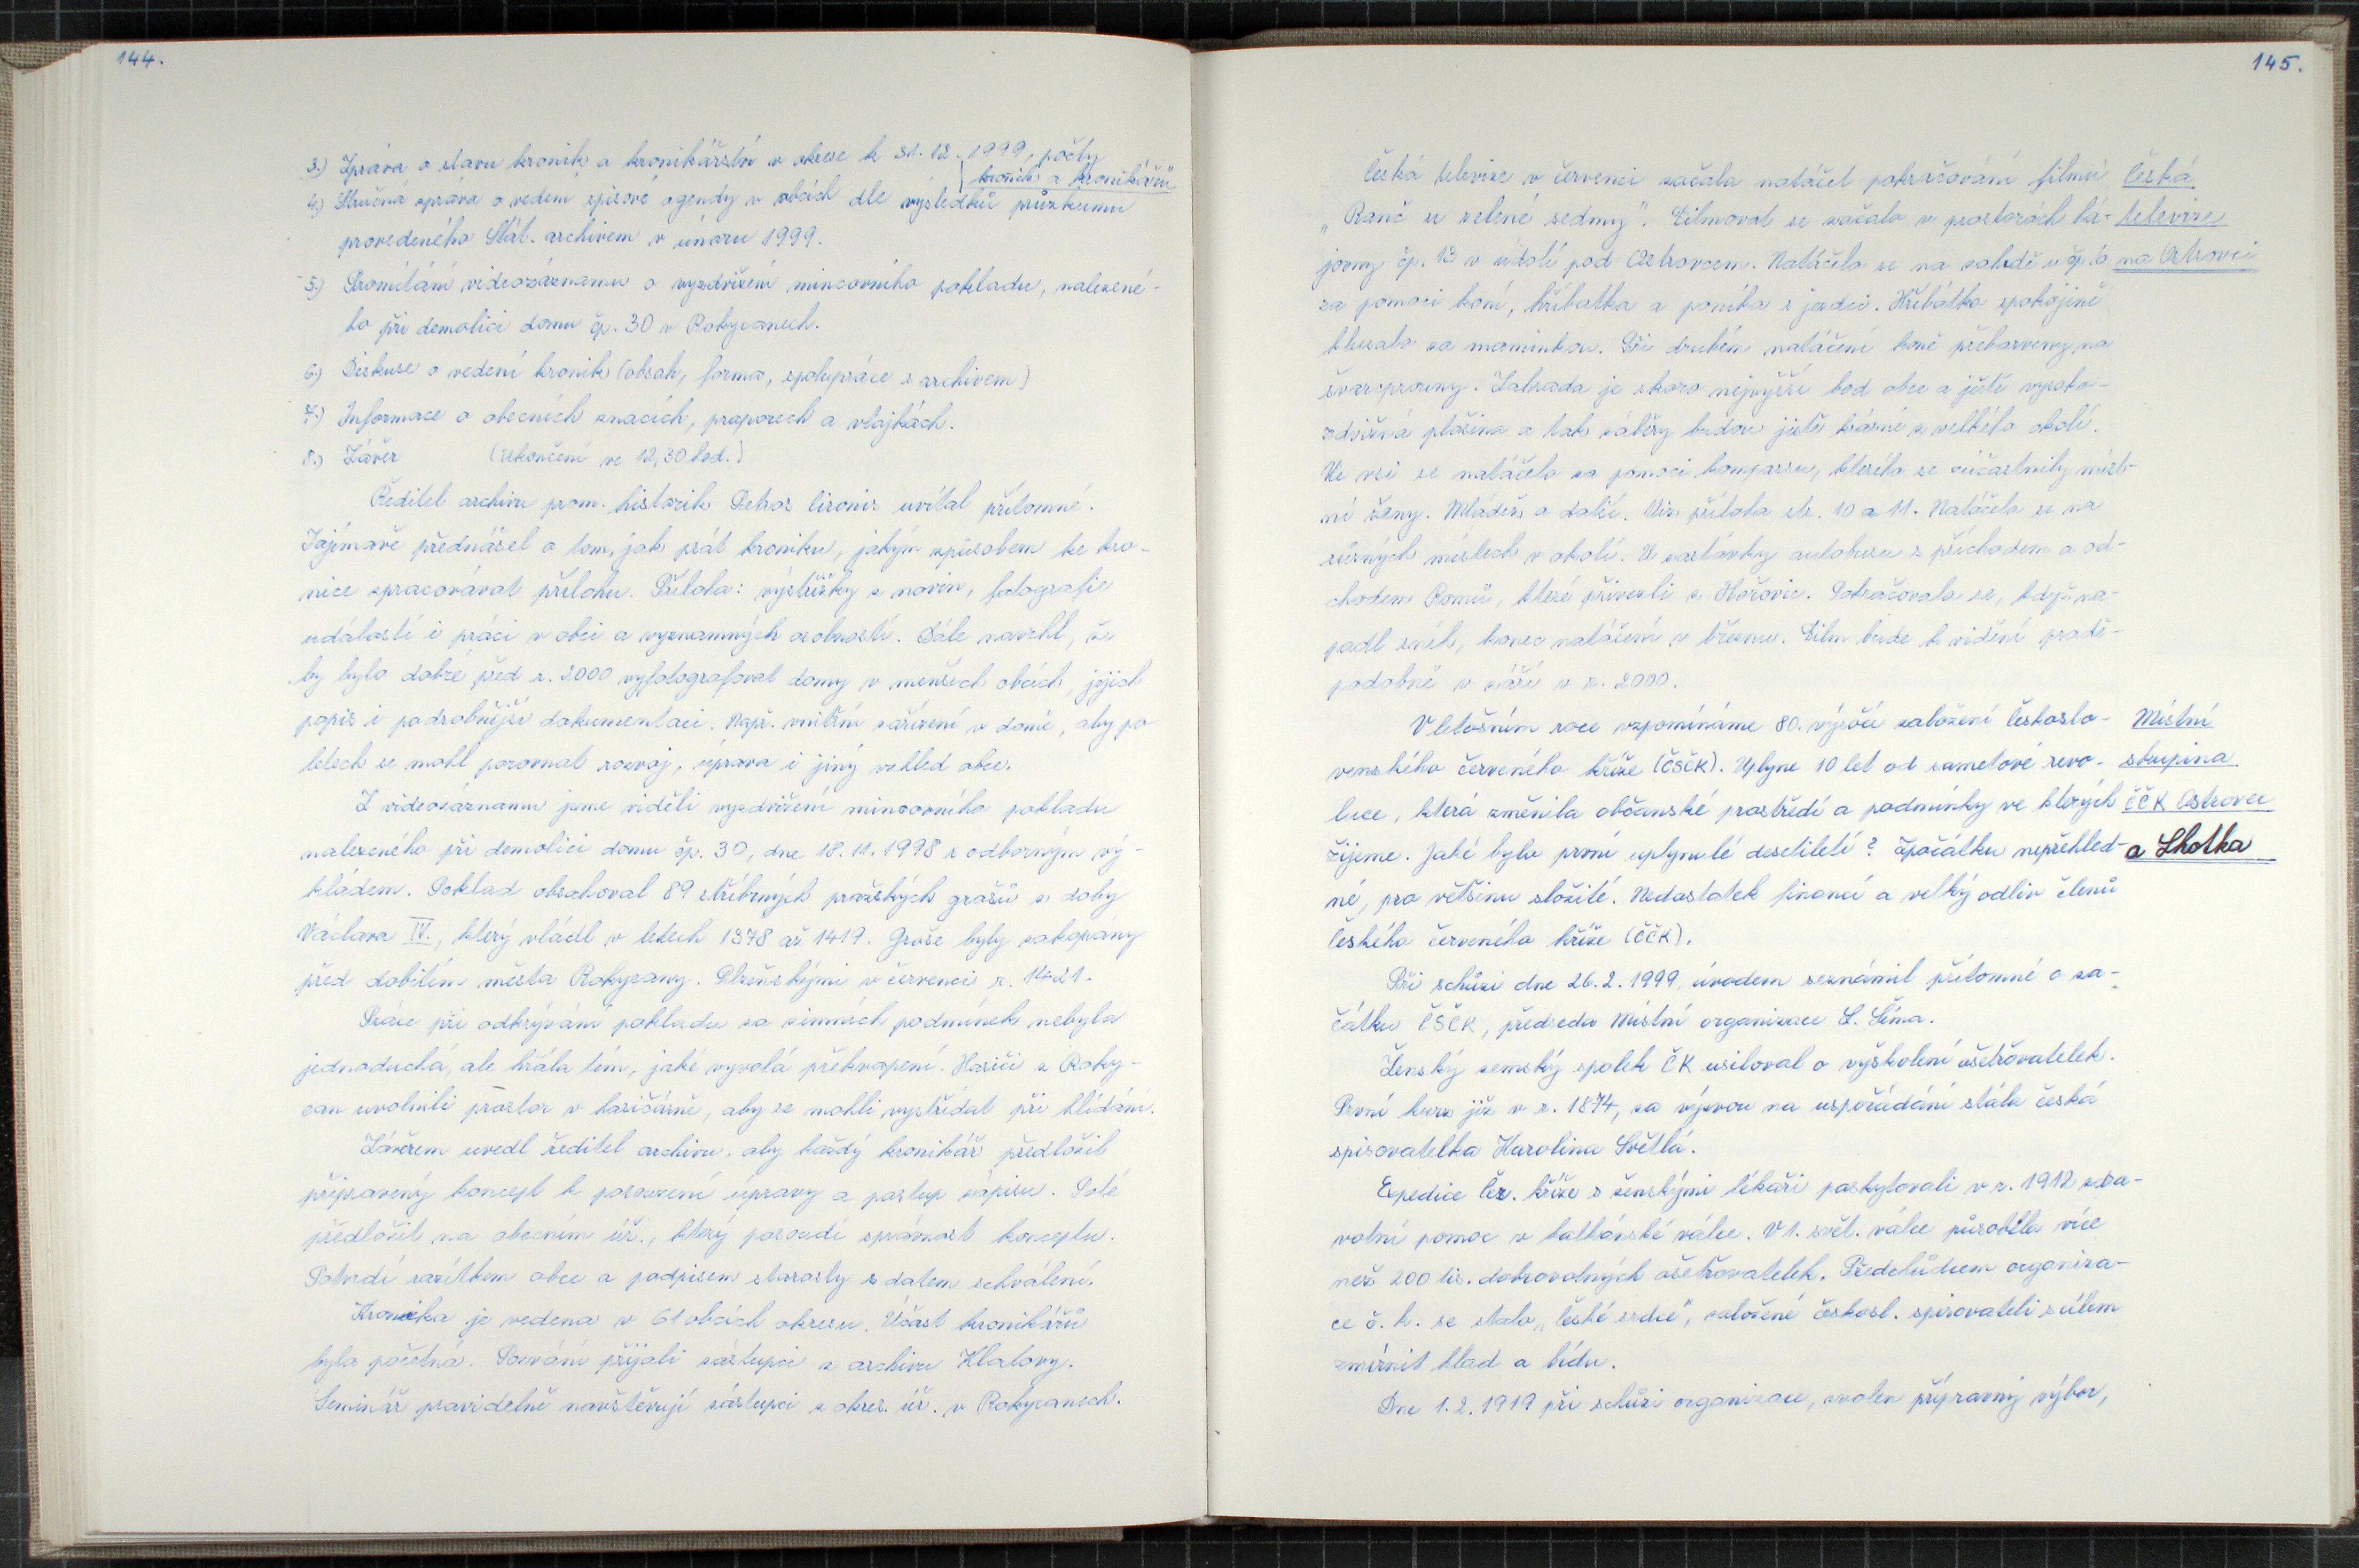 144.
3.) Zpráva o stavu kronik a kronikářství v okrese k 31.12.1999, počty
kronik a kronikářů
4.) Stručná zpráva o vedení spisové agendy v obcích dle výsledků průzkumu
provedeného Stát. archivem v únoru 1999.
5.) Promítání videozáznamu o vyzdvižení mincovního pokladu, nalezené-
ho při demolici domu čp. 30 v Rokycanech.
6.) Diskuse o vedení kronik (obsah, forma, spolupráce s archivem)
7.) Informace o obecních znacích, praporech a vlajkách.
8.) Závěr (Ukončení ve 12,30 hod.)
Ředitel archivu prom. historik Petros Cironis uvítal přítomné.
Zajímavě přednášel o tom, jak psát kroniku, jakým způsobem ke kro-
nice zpracovávat přílohu. Příloha: výstřižky z novin, fotografie
událostí i práci v obci a významných osobností. Dále navrhl, že
by bylo dobré před r. 2000 vyfotografovat domy v menších obcích, jejich
popis i podrobnější dokumentaci. Např. vnitřní zařízení v domě, aby po
letech se mohl porovnat rozvoj, úprava i jiný vzhled obce.
Z videozáznamu jsme viděli vyzdvižení mincovního pokladu
nalezeného při demolici domu čp. 30, dne 18.11.1998 s odborným vý-
kladem. Poklad obsahoval 89 stříbrných pražských grošů z doby
Václava IV., který vládl v letech 1378 až 1419. Groše byly zakopány
před dobitím města Rokycany. Plzeňskými v červenci r. 1421.
Práce při odkrývání pokladu za zimních podmínek nebyla
jednoduchá, ale hřála tím, jaké vyvolá překvapení. Hasiči z Roky-
can uvolnili prostor v hasičárně, aby se mohli vystřídat při hlídání.
Závěrem uvedl ředitel archivu, aby každý kronikář předložil
připravený koncept k posouzení úpravy a postup zápisu. Poté
předložit na obecním úř., který posoudí správnost konceptu.
Potvrdí razítkem obce a podpisem starosty s datem schválení.
Kronika je vedena v 61 obcích okresu. Účast kronikářů
byla početná. Pozvání přijali zástupci z archivu Klatovy.
Seminář pravidelně navštěvují zástupci z okres. úř. v Rokycanech.
145.
Česká televize v červenci začala natáčet pokračování filmu Česká
„Ranč u zelené sedmy“. Filmovat se začalo v prostorách há- televize
jovny čp. 13 v údolí pod Ostrovcem. Natáčelo se na zahradě u čp. 6 na Ostrovci
za pomoci koní, hříbátka a poníka s jezdci. Hříbátko spokojeně
klusalo za maminkou. Při druhém natáčení koně přebarveny na
švarcprouny. Zahrada je skoro nejvyšší bod obce a ještě vysoko-
zdvižná plošina a tak záběry budou jistě krásné z velkého okolí.
Ve vsi se natáčelo za pomoci kompasu, kterého se zúčastnily míst-
ní ženy. Mládež a další. Viz příloha str. 10 a 11. Natáčelo se na
různých místech v okolí. U zastávky autobusu s příchodem a od-
chodem Romů, které přivezli z Hořovic. Pokračovalo se, když na-
padl sníh, konec natáčení v březnu. Film bude k vidění pravdě-
podobně v září v r. 2000.
V letošním roce vzpomínáme 80. výročí založení Českoslo- Místní
venského červeného kříže (ČSČK). Uplyne 10 let od sametové revo- skupina
luce, která změnila občanské prostředí a podmínky ve kterých ČČK Ostrovec
žijeme. Jaké bylo první uplynulé desetiletí? Zpočátku nepřehled- a Lhotka
né, pro většinu složité. Nedostatek financí a velký odliv členů
Českého červeného kříže (ČČK).
Při schůzi dne 26.2.1999 úvodem seznámil přítomné o za-
čátku ČSČK, předseda Místní organizace L. Šíma.
Ženský zemský spolek ČK usiloval o vyškolení ošetřovatelek.
První kurz již v r. 1874, za výzvou na uspořádání stála česká
spisovatelka Karolina Světlá.
Expedice Čer. kříže s ženskými lékaři poskytovali v r. 1912 zdra-
votní pomoc v balkánské válce. V 1. svět. válce působilo více
než 200 tis. dobrovolných ošetřovatelek. Předchůdcem organiza-
ce č. k. se stalo „České srdce“, založené českosl. spisovateli s cílem
zmírnit hlad a bídu.
Dne 1.2.1919 při schůzi organizace, zvolen přípravný výbor,